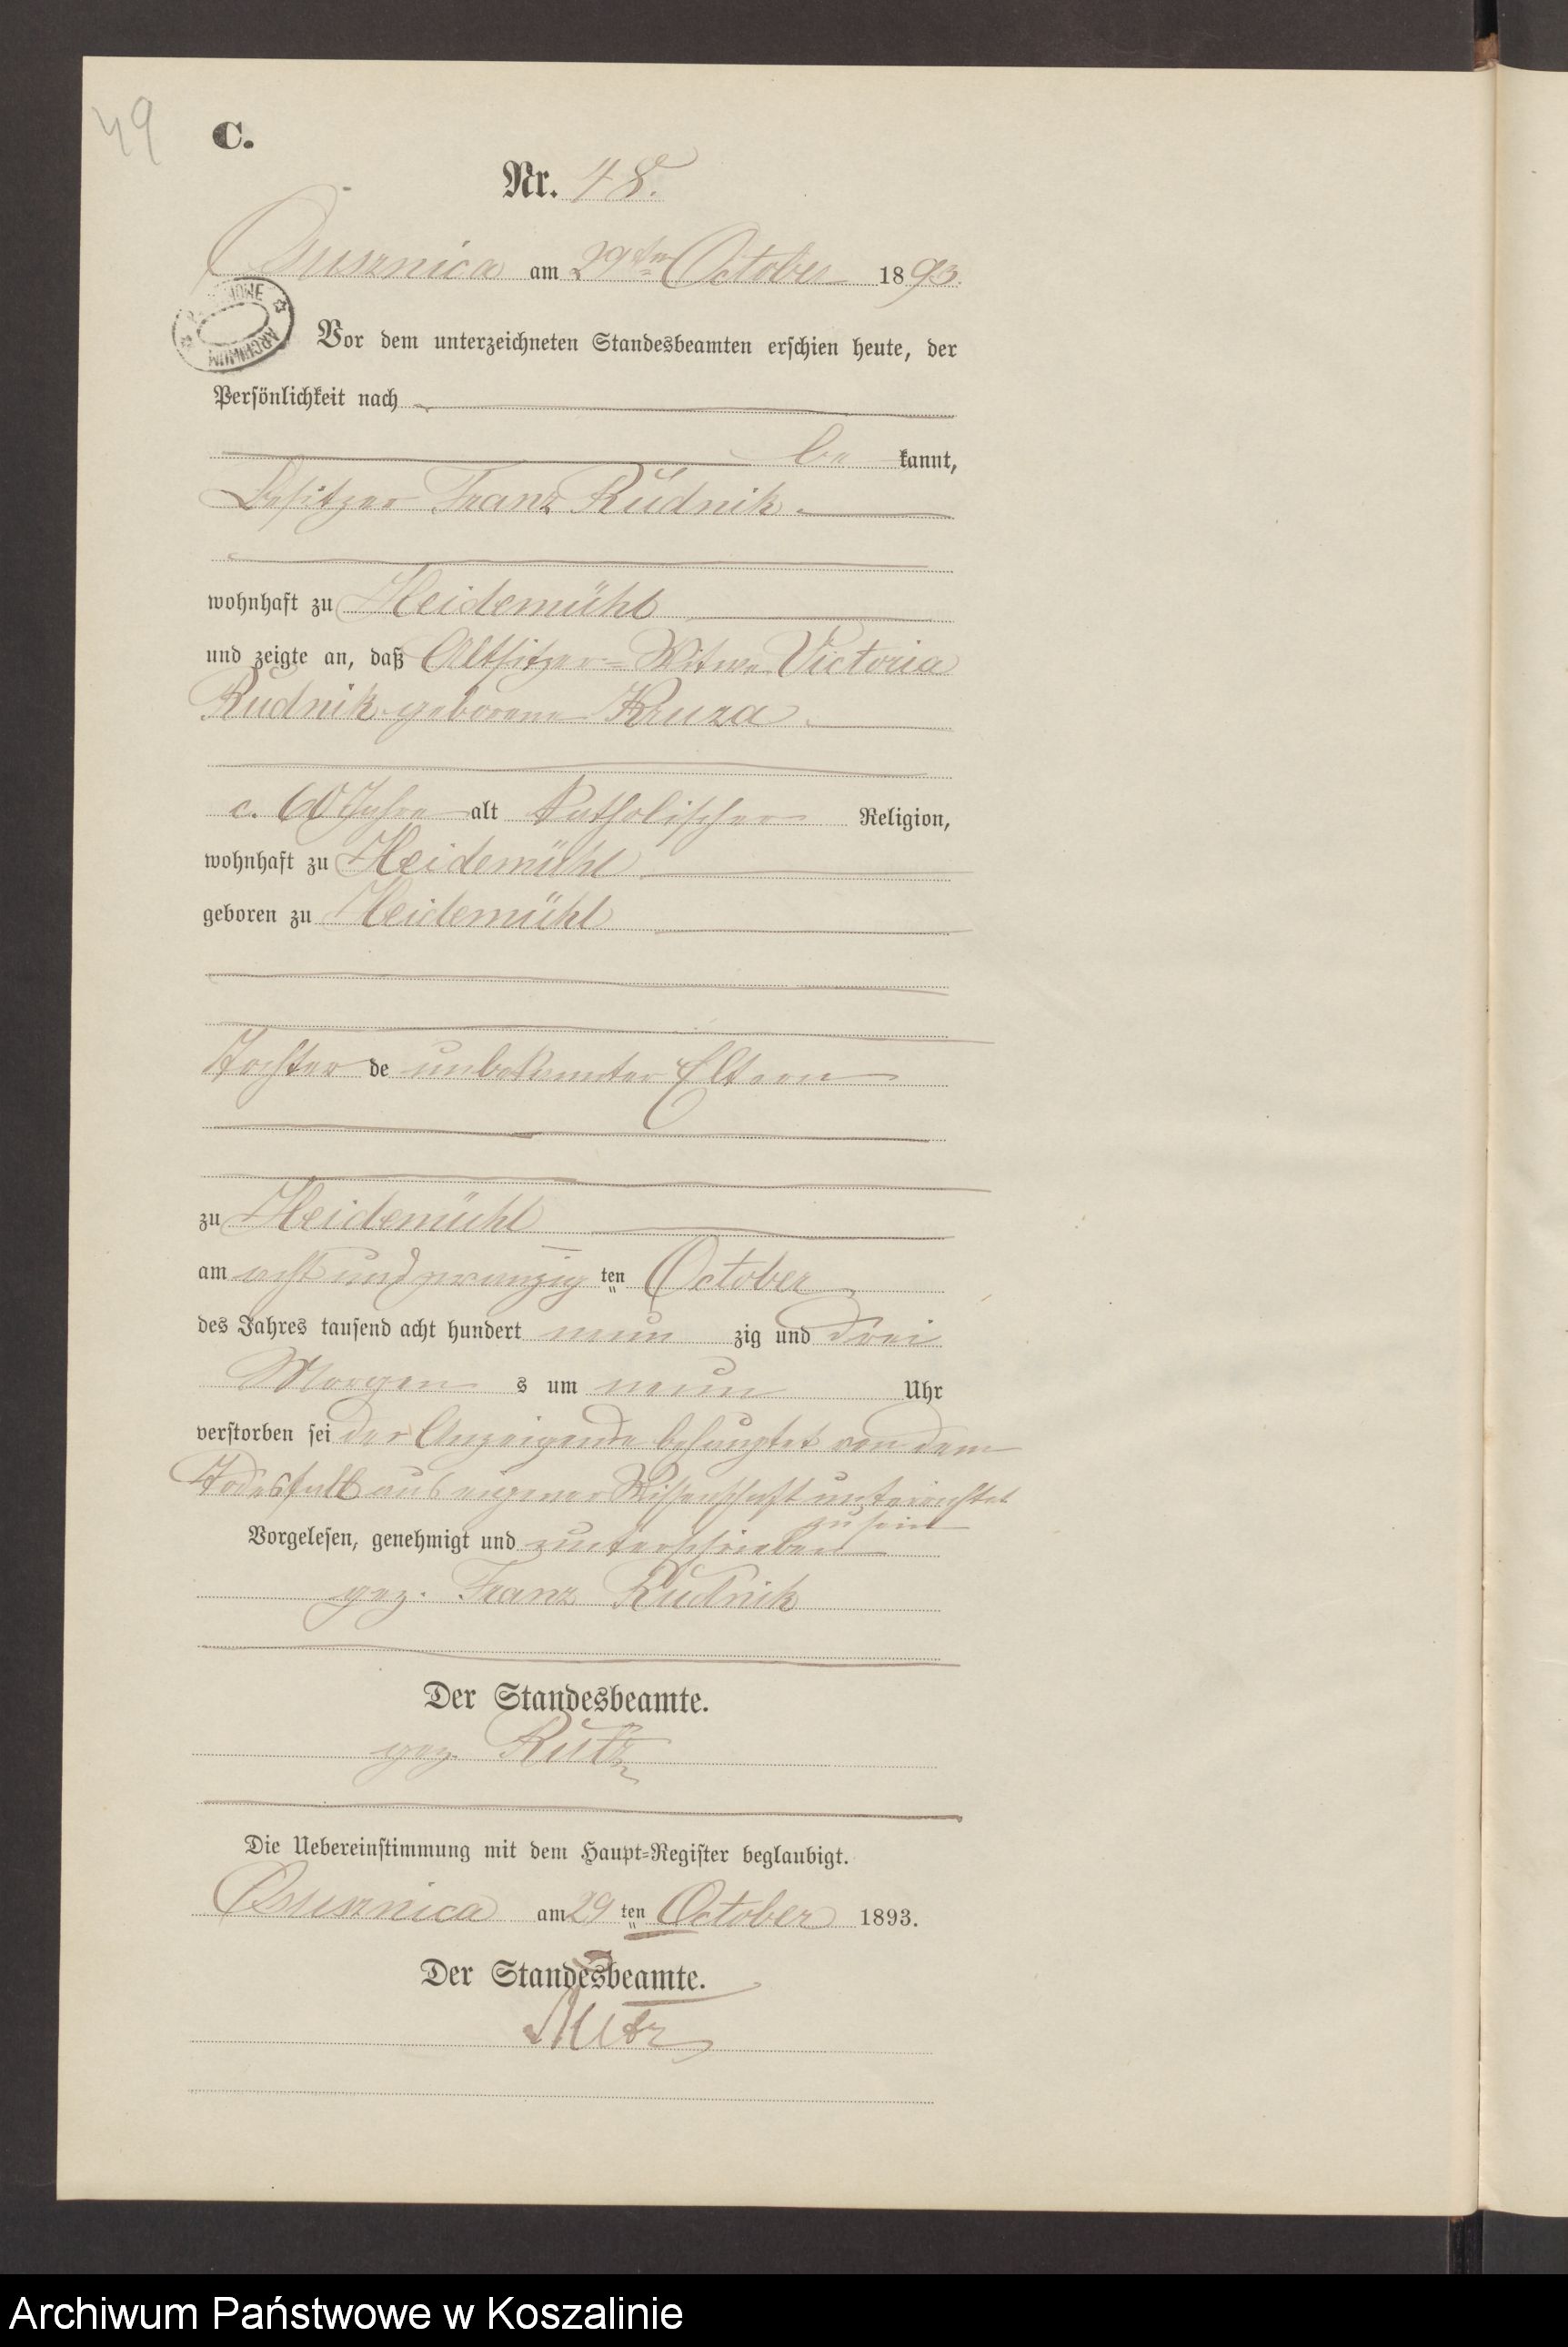 49
C.
Nr. 48.
am 29ten October 1893.
Vor dem unterzeichneten Standesbeamten erschien heute, der
Persönlichkeit nach
be kannt,
Besitzer Franz Rudnik
wohnhaft zu Heidemühl
und zeigte an, daß Altsitzer-Witwe Victoria
Rudnik geborene Kruza
c. 60 Jahre alt katholischer Religion,
wohnhaft zu Heidemühl
geboren zu Heidemühl
Tochter de unbekannter Eltern
zu Heidemühl
am acht und zwanzig ten October
des Jahres tausend acht hundert neun zig und drei
Morgen s um neun Uhr
verstorben sei der Anzeigende behauptet von dem
Todesfall aus eigener Wissenschaft unterrichtet
zu sein
Vorgelesen, genehmigt und unterschrieben
gez. Franz Rudnik
Der Standesbeamte.
gez. Rutz
Die Uebereinstimmung mit dem Haupt-Register beglaubigt.
am 29 ten October 1893.
Der Standesbeamte.
Rutz
Archiwum Państwowe w Koszalinie